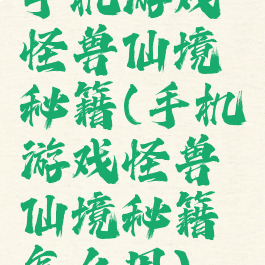 手机游戏
怪兽仙境
秘籍(手机
游戏怪兽
仙境秘籍